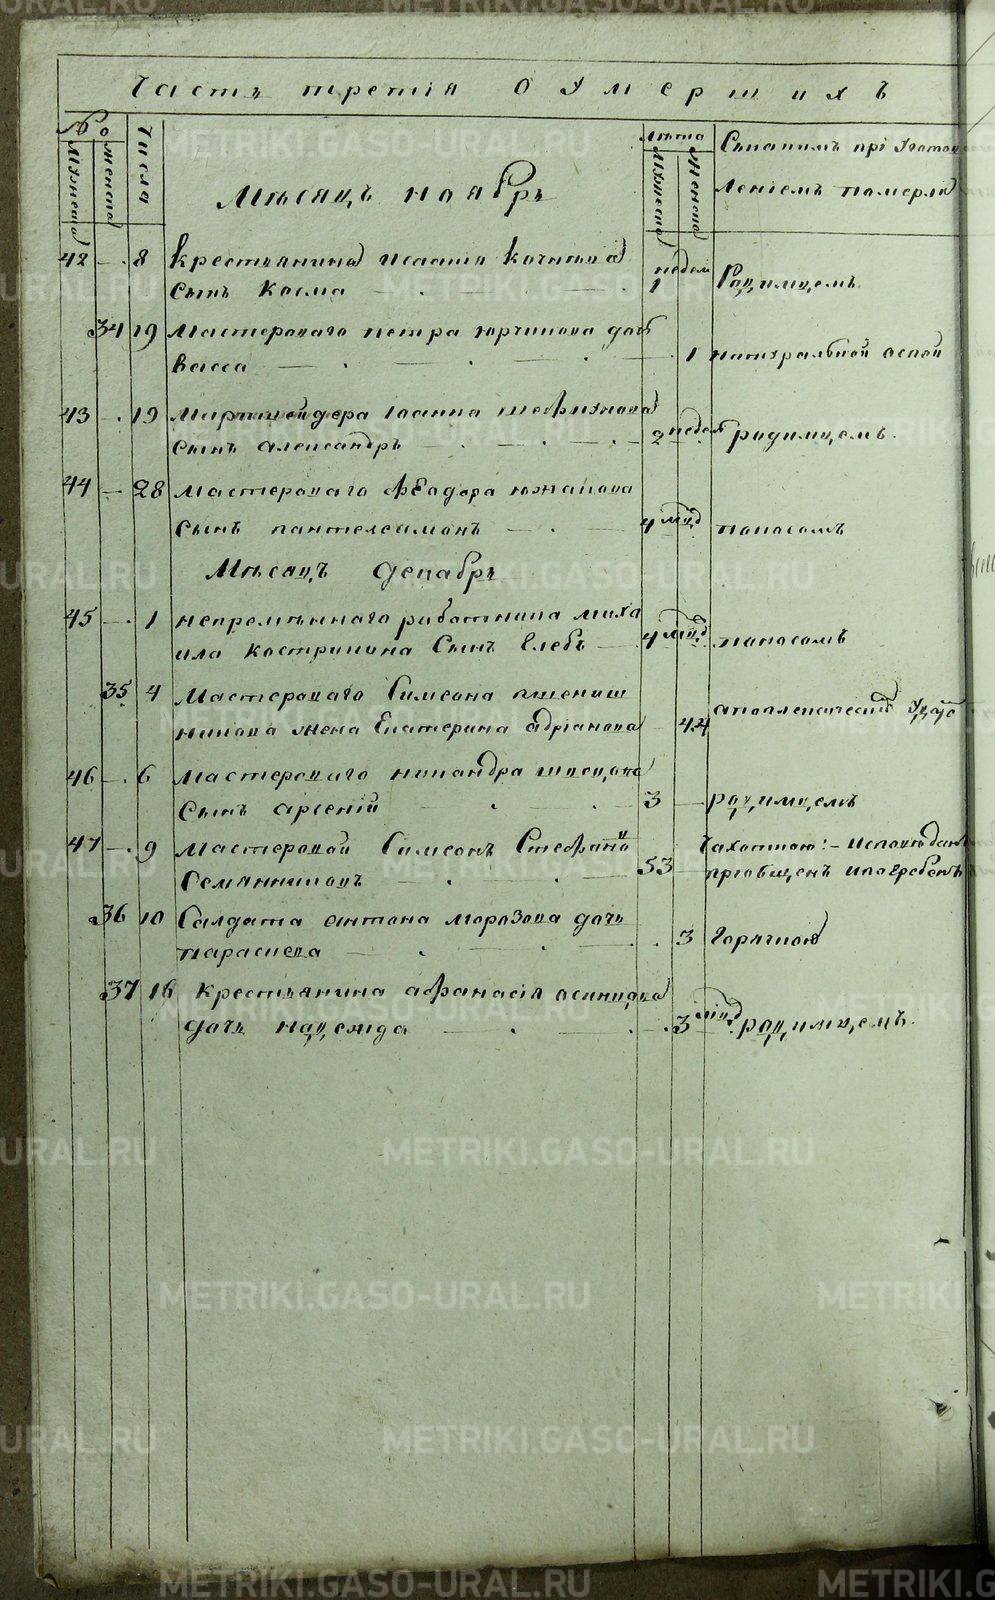 Часть третія о умершихъ
№
мужеска
женска
Числа
Мѣсяцъ ноябрь
лѣта
мужеска
женска
Съкакимъ пріугото
леніемъ померли
42 — 8 крестьянина Исаакія
сынъ Косма — недел 1 Родимцемъ
34 19 Мастероваго петра дочь
васса — 1 натуральной оспой
43 — 19 Іоанна
сынъ александръ — 2 недел родимцемъ
44 — 28 мастероваго феодора южакова
сынъ пантелеимонъ — 4 мцд поносомъ
Мѣсяцъ декабрь
45 — 1 непремѣннаго работника миха
ила кострикина Сынъ Глебъ — 4 мцд поносомъ
35 4 Мастероваго Симеона пшениш
никова жена Екатерина адріанова — 44
46 — 6 мастероваго никандра швецова
Сынъ арсеній — 3 — родимцемъ
47 — 9 мастеровой Симеонъ Стефано
Семянниковъ — 53 Чахоткою: исповѣданъ
пріобщенъ ипогребенъ
36 10 Салдата антона морозова дочь
параскева — 3 Горячкою
37 16 крестьянина афанасія осинцова
дочь надежда — 3 мцд родимцемъ.
METRIKI.GASO-URAL.RU